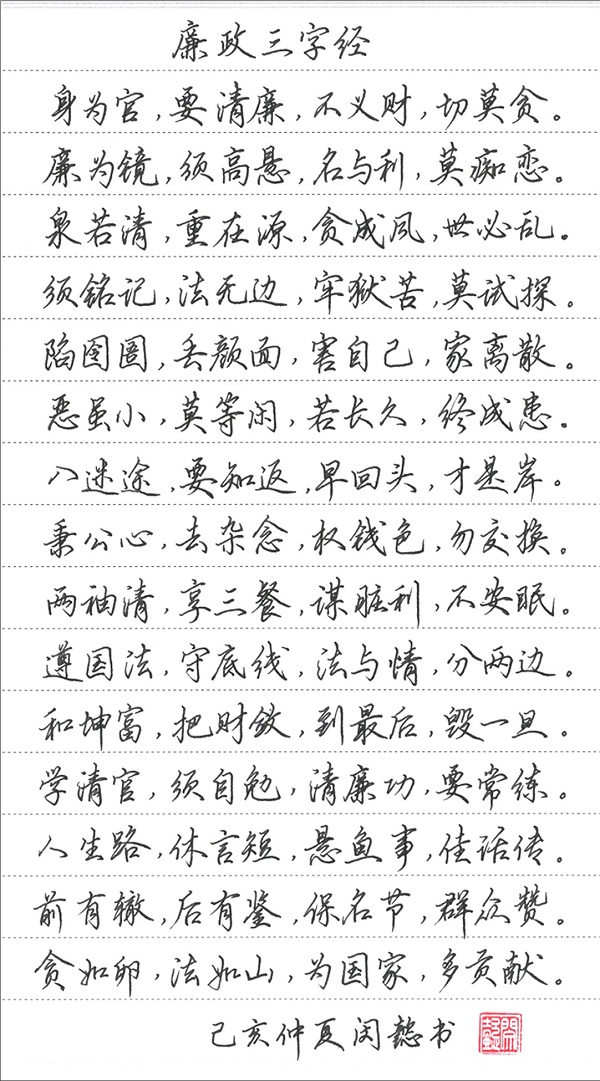 廉政三字经
身为官，要清廉，不义财，切莫贪。
廉为镜，须高悬，名与利，莫痴恋。
泉若清，重在源，贪成风，世必乱。
须铭记，法无边，牢狱苦，莫试探。
陷囹圄，丢颜面，害自己，家离散。
恶虽小，莫等闲，若长久，终成患。
入迷途，要知返，早回头，才是岸。
秉公心，去杂念，权钱色，勿交换。
两袖清，享三餐，谋脏利，不安眠。
遵国法，守底线，法与情，分两边。
和坤富，把财敛，到最后，毁一旦。
学清官，须自勉，清廉功，要常练。
人生路，休言短，悬鱼事，佳话传。
前有辙，后有鉴，保名节，群众赞。
贪如卵，法如山，为国家，多贡献。
己亥仲夏闵懿书